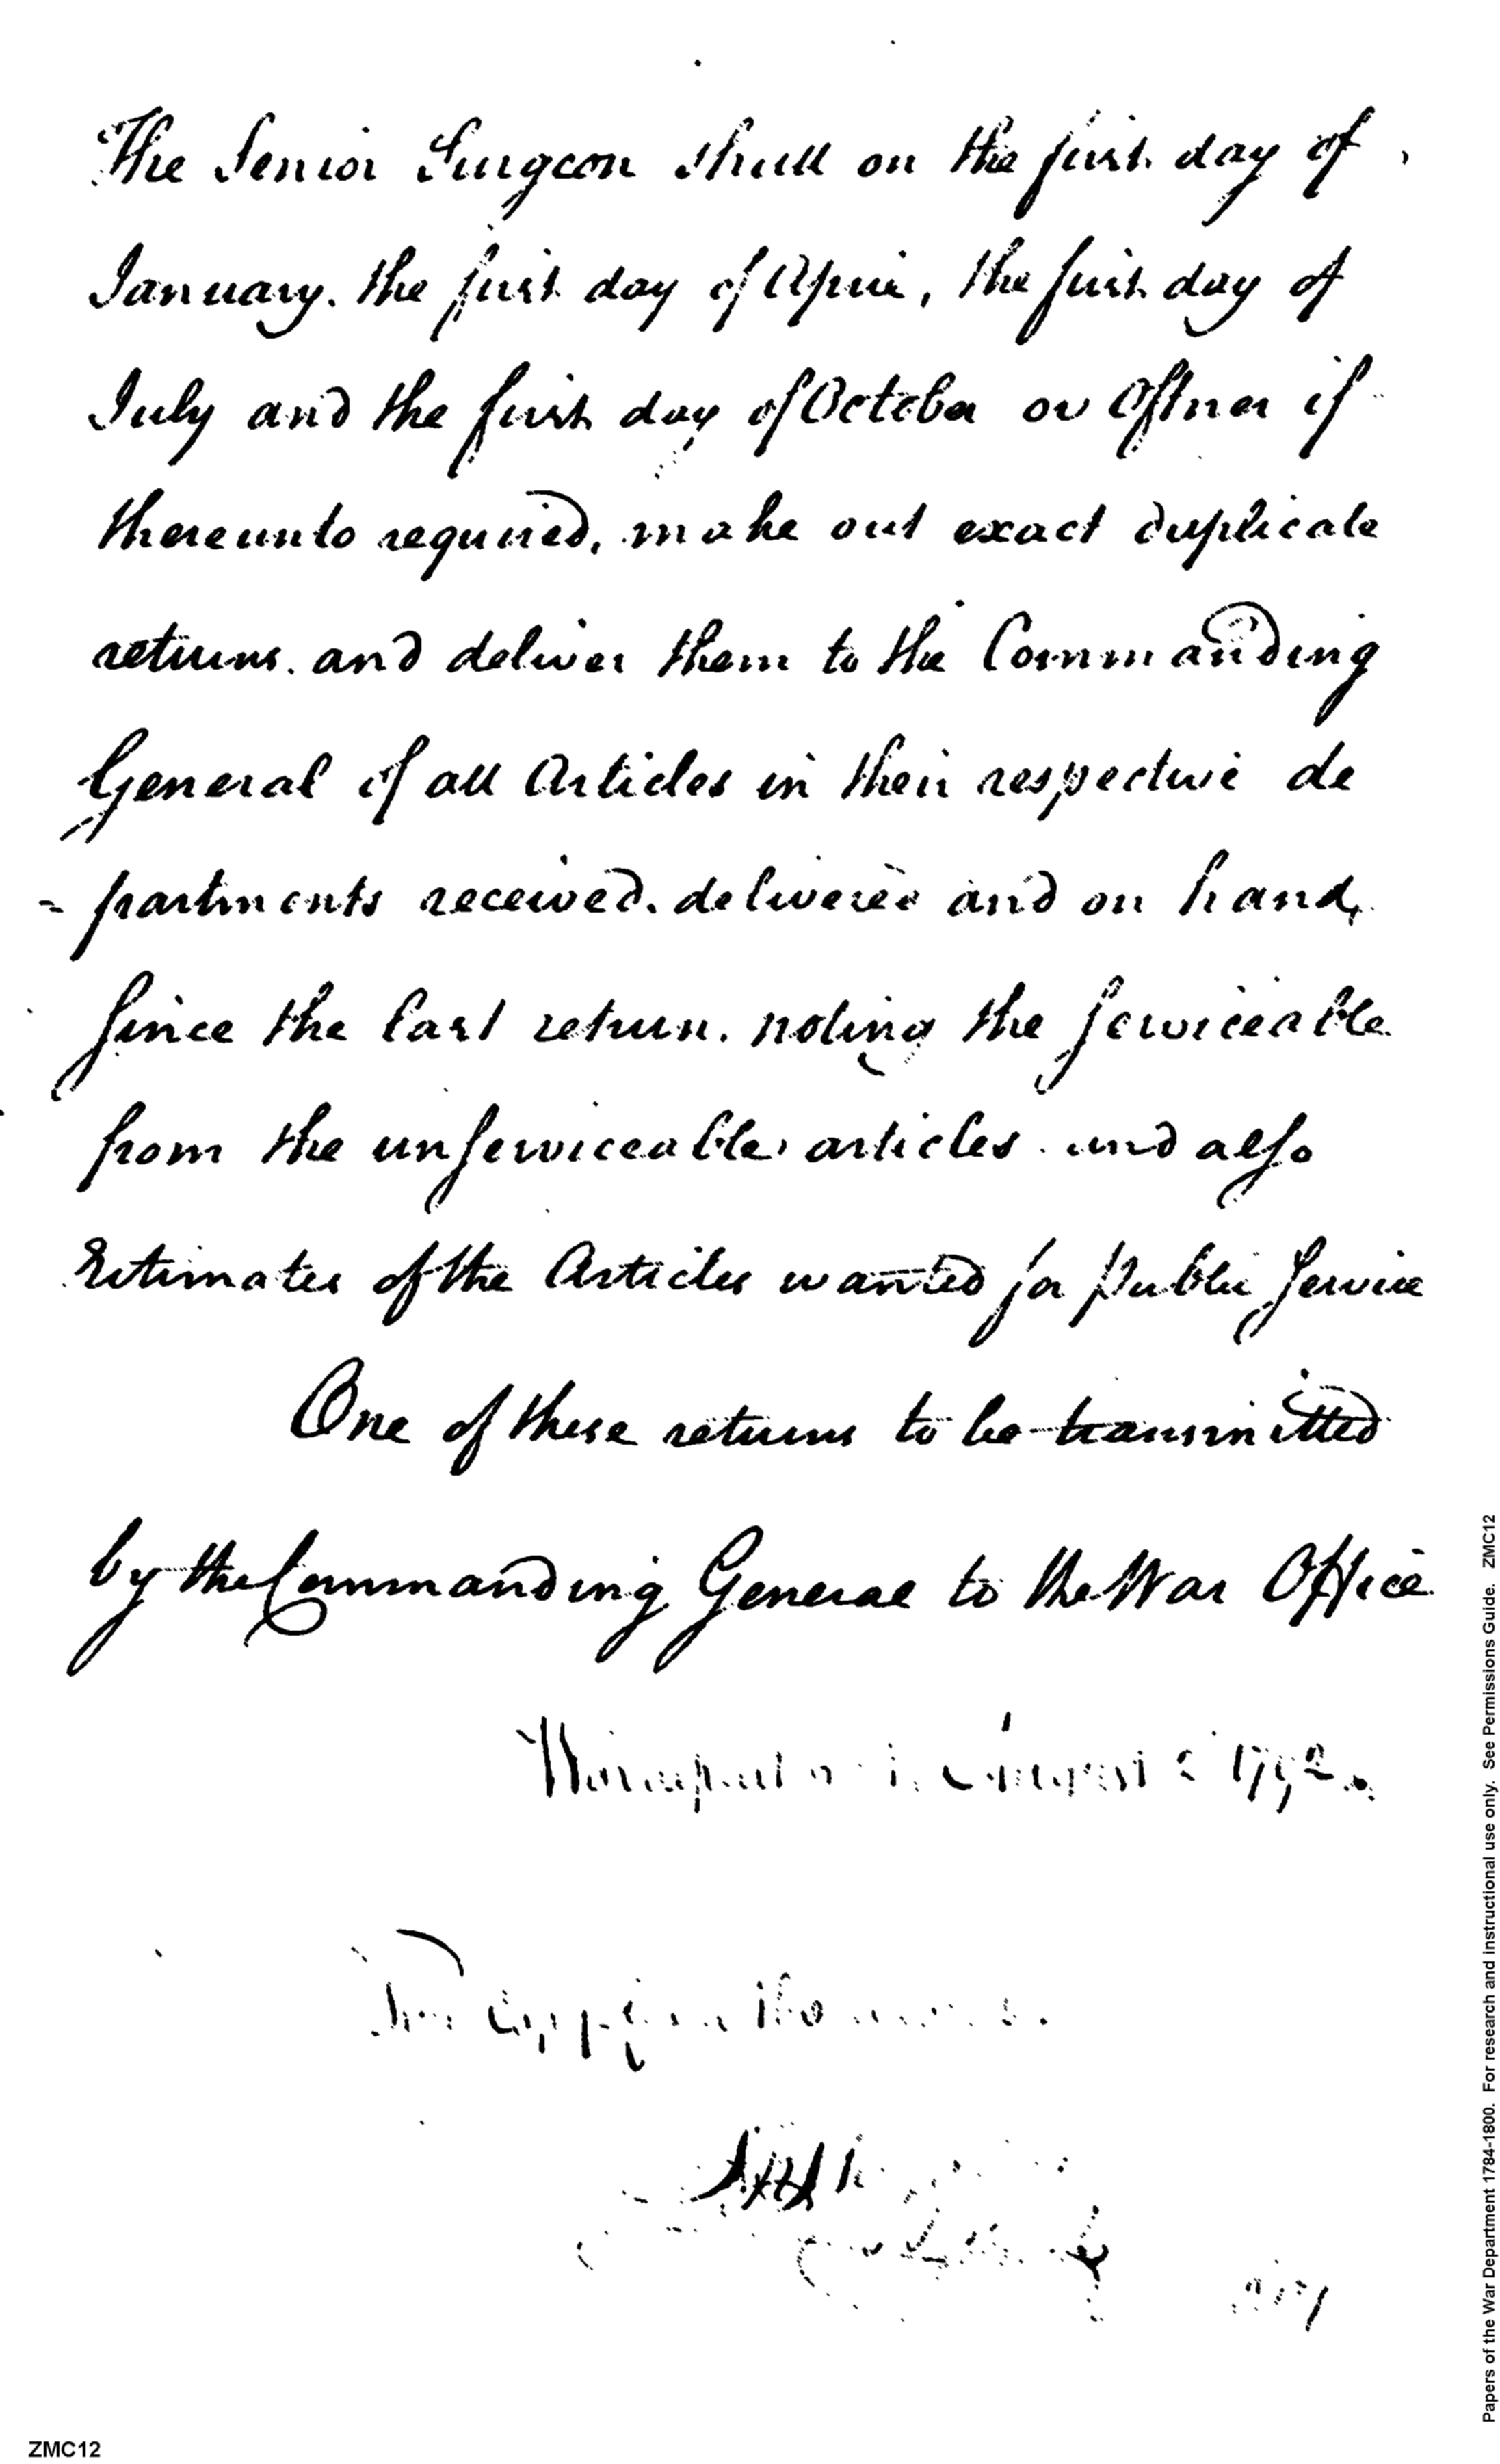 The Senior Surgeon shall on the first day of
January. the first day of April, the first day of
July and the first day of October or oftner if
thereunto required, make out exact duplicate
returns. and deliver them to the Commanding
General of all Articles in their respective de
=partments received. delivered and on hand,
since the last return. noting the serviceable
from the unserviceable, articles. and also
Estimates of the Articles wanted for public service
One of these returns to be transmitted
by the Commanding General to the War Office
1792.
Papers of the War Department 1784-1800. For research and instructional use only. See Permissions Guide. ZMC12
ZMC12